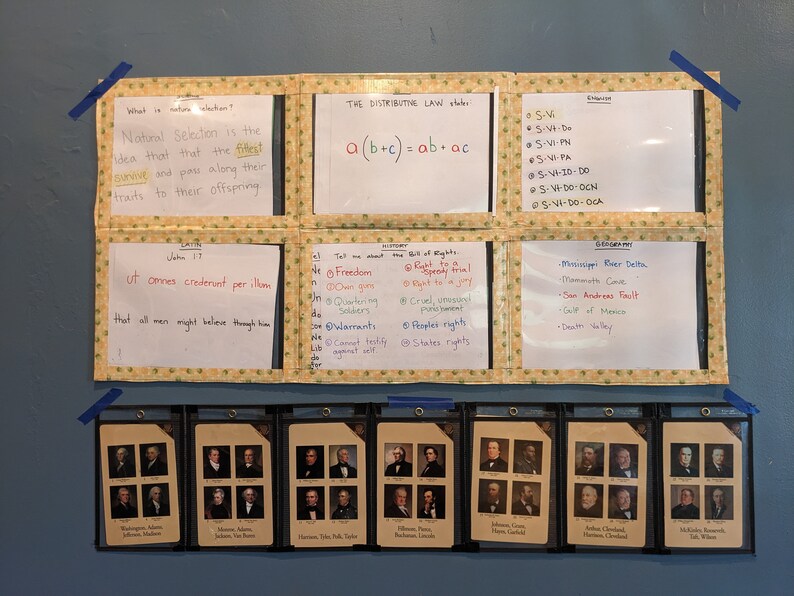 What is natural selection?
Natural Selection is the
idea that that the fittest
survive and pass along their
traits to their offspring.
THE DISTRIBUTIVE LAW states:
a(b+c) = ab + ac
ENGLISH
① S-Vi
② S-Vt-Do
③ S-Vl-PN
④ S-Vl-PA
⑤ S-Vt-IO-DO
⑥ S-Vt-DO-OCN
⑦ S-Vt-DO-OCA
LATIN
John 1:7
ut omnes crederunt per illum
that all men might believe through him
HISTORY
Tell me about the Bill of Rights.
① Freedom
② Own gum
③ Quartering
soldiers
④ Warrants
⑤ Cannot testify
against self.
⑥ Right to a
speedy trial
⑦ Right to a jury
⑧ Cruel, unusual
punishment
⑨ Peoples rights
⑩ States rights
el
Ne
n
Un
do
con
We
Lib
do
for
GEOGRAPHY
· Mississippi River Delta
· Mammoth Cave
· San Andreas Fault
· Gulf of Mexico
· Death Valley
Washington, Adams,
Jefferson, Madison
Monroe, Adams,
Jackson, Van Buren
Harrison, Tyler, Polk, Taylor
Fillmore, Pierce,
Buchanan, Lincoln
Johnson, Grant,
Hayes, Garfield
Arthur, Cleveland,
Harrison, Cleveland
McKinley, Roosevelt,
Taft, Wilson